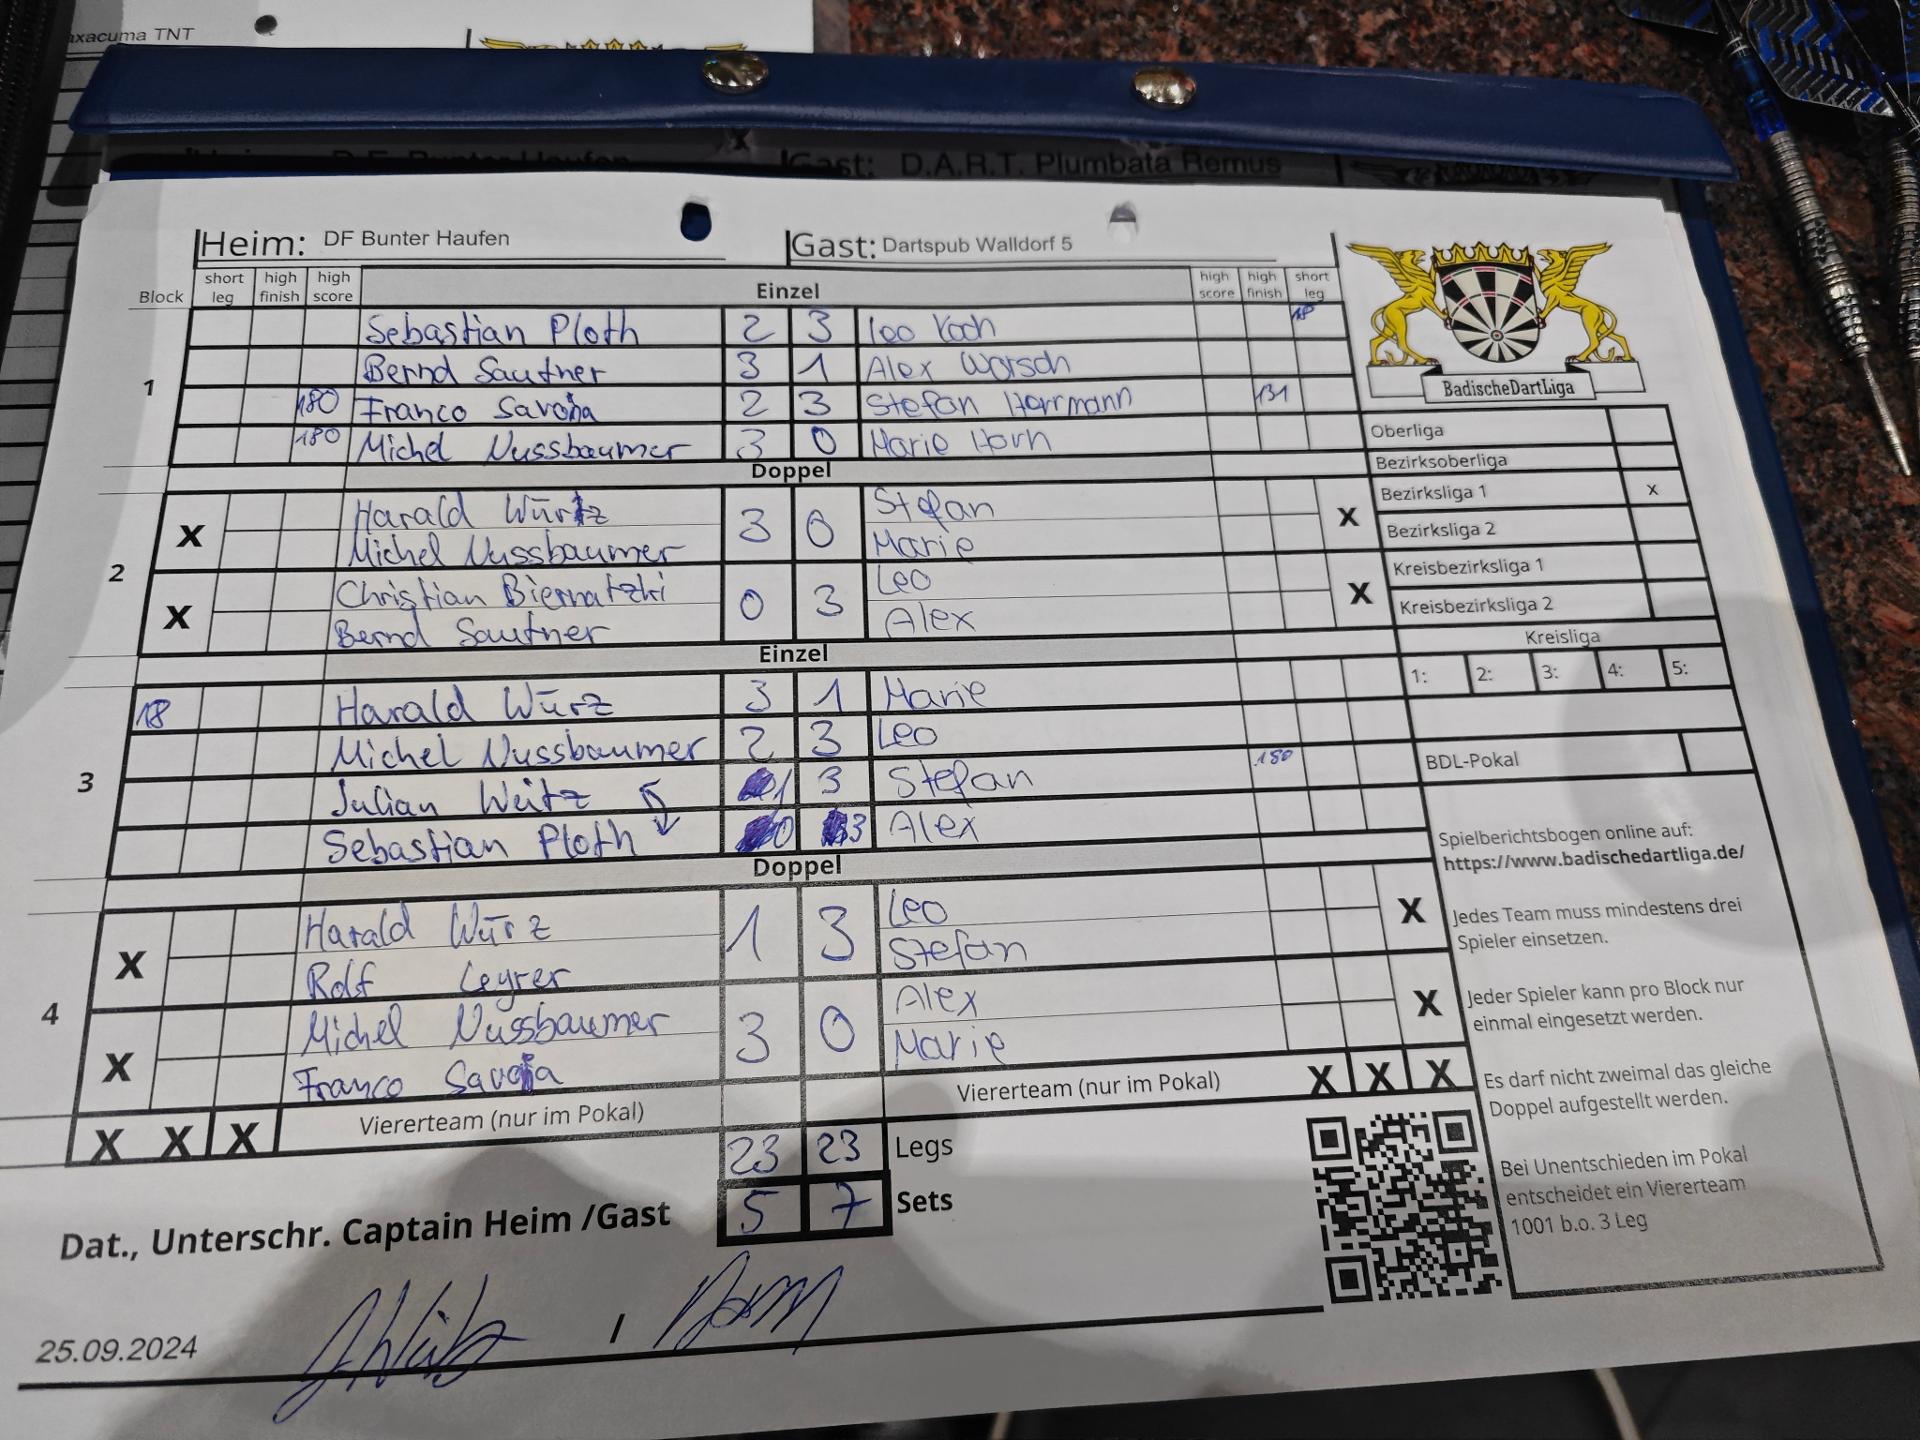 axacuma TNT
Heim: D.F. Bunter Haufen Gast: D.A.R.T. Plumbata Remus
Heim: DF Bunter Haufen Gast: Dartspub Walldorf 5
Block short leg high finish high score Einzel high score high finish short leg
1
Sebastian Ploth 2 3 Leo Koch 18
Bernd Sautner 3 1 Alex Worsch
180 Franco Savoia 2 3 Stefan Herrmann 131
180 Michel Nussbaumer 3 0 Marie Horn
Doppel
2
X Harald Würtz 3 0 Stefan X
Michel Nussbaumer Marie
X Christian Biernatzki 0 3 Leo X
Bernd Sautner Alex
Einzel
3
18 Harald Würz 3 1 Marie
Michel Nussbaumer 2 3 Leo
Julian Weitz 1 3 Stefan 180
Sebastian Ploth 0 3 Alex
Doppel
4
X Harald Würz 1 3 Leo X
Rolf Leyrer Stefan
X Michel Nussbaumer 3 0 Alex X
Franco Savoia Marie
X X X Viererteam (nur im Pokal) Viererteam (nur im Pokal) X X X
23 23 Legs
5 7 Sets
Dat., Unterschr. Captain Heim /Gast
25.09.2024 /
BadischeDartLiga
Oberliga
Bezirksoberliga
Bezirksliga 1 x
Bezirksliga 2
Kreisbezirksliga 1
Kreisbezirksliga 2
Kreisliga
1: 2: 3: 4: 5:
BDL-Pokal
Spielberichtsbogen online auf:
https://www.badischedartliga.de/
Jedes Team muss mindestens drei
Spieler einsetzen.
Jeder Spieler kann pro Block nur
einmal eingesetzt werden.
Es darf nicht zweimal das gleiche
Doppel aufgestellt werden.
Bei Unentschieden im Pokal
entscheidet ein Viererteam
1001 b.o. 3 Leg